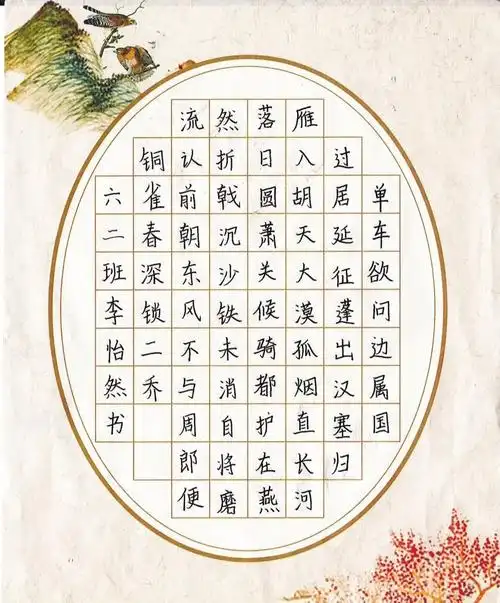 单车欲问边属国
过居延征蓬出汉塞归
雁入胡天大漠孤烟直长河
落日圆萧关候骑都护在燕
然折戟沉沙铁未消自将磨
流认前朝东风不与周郎便
铜雀春深锁二乔
六二班李怡然书